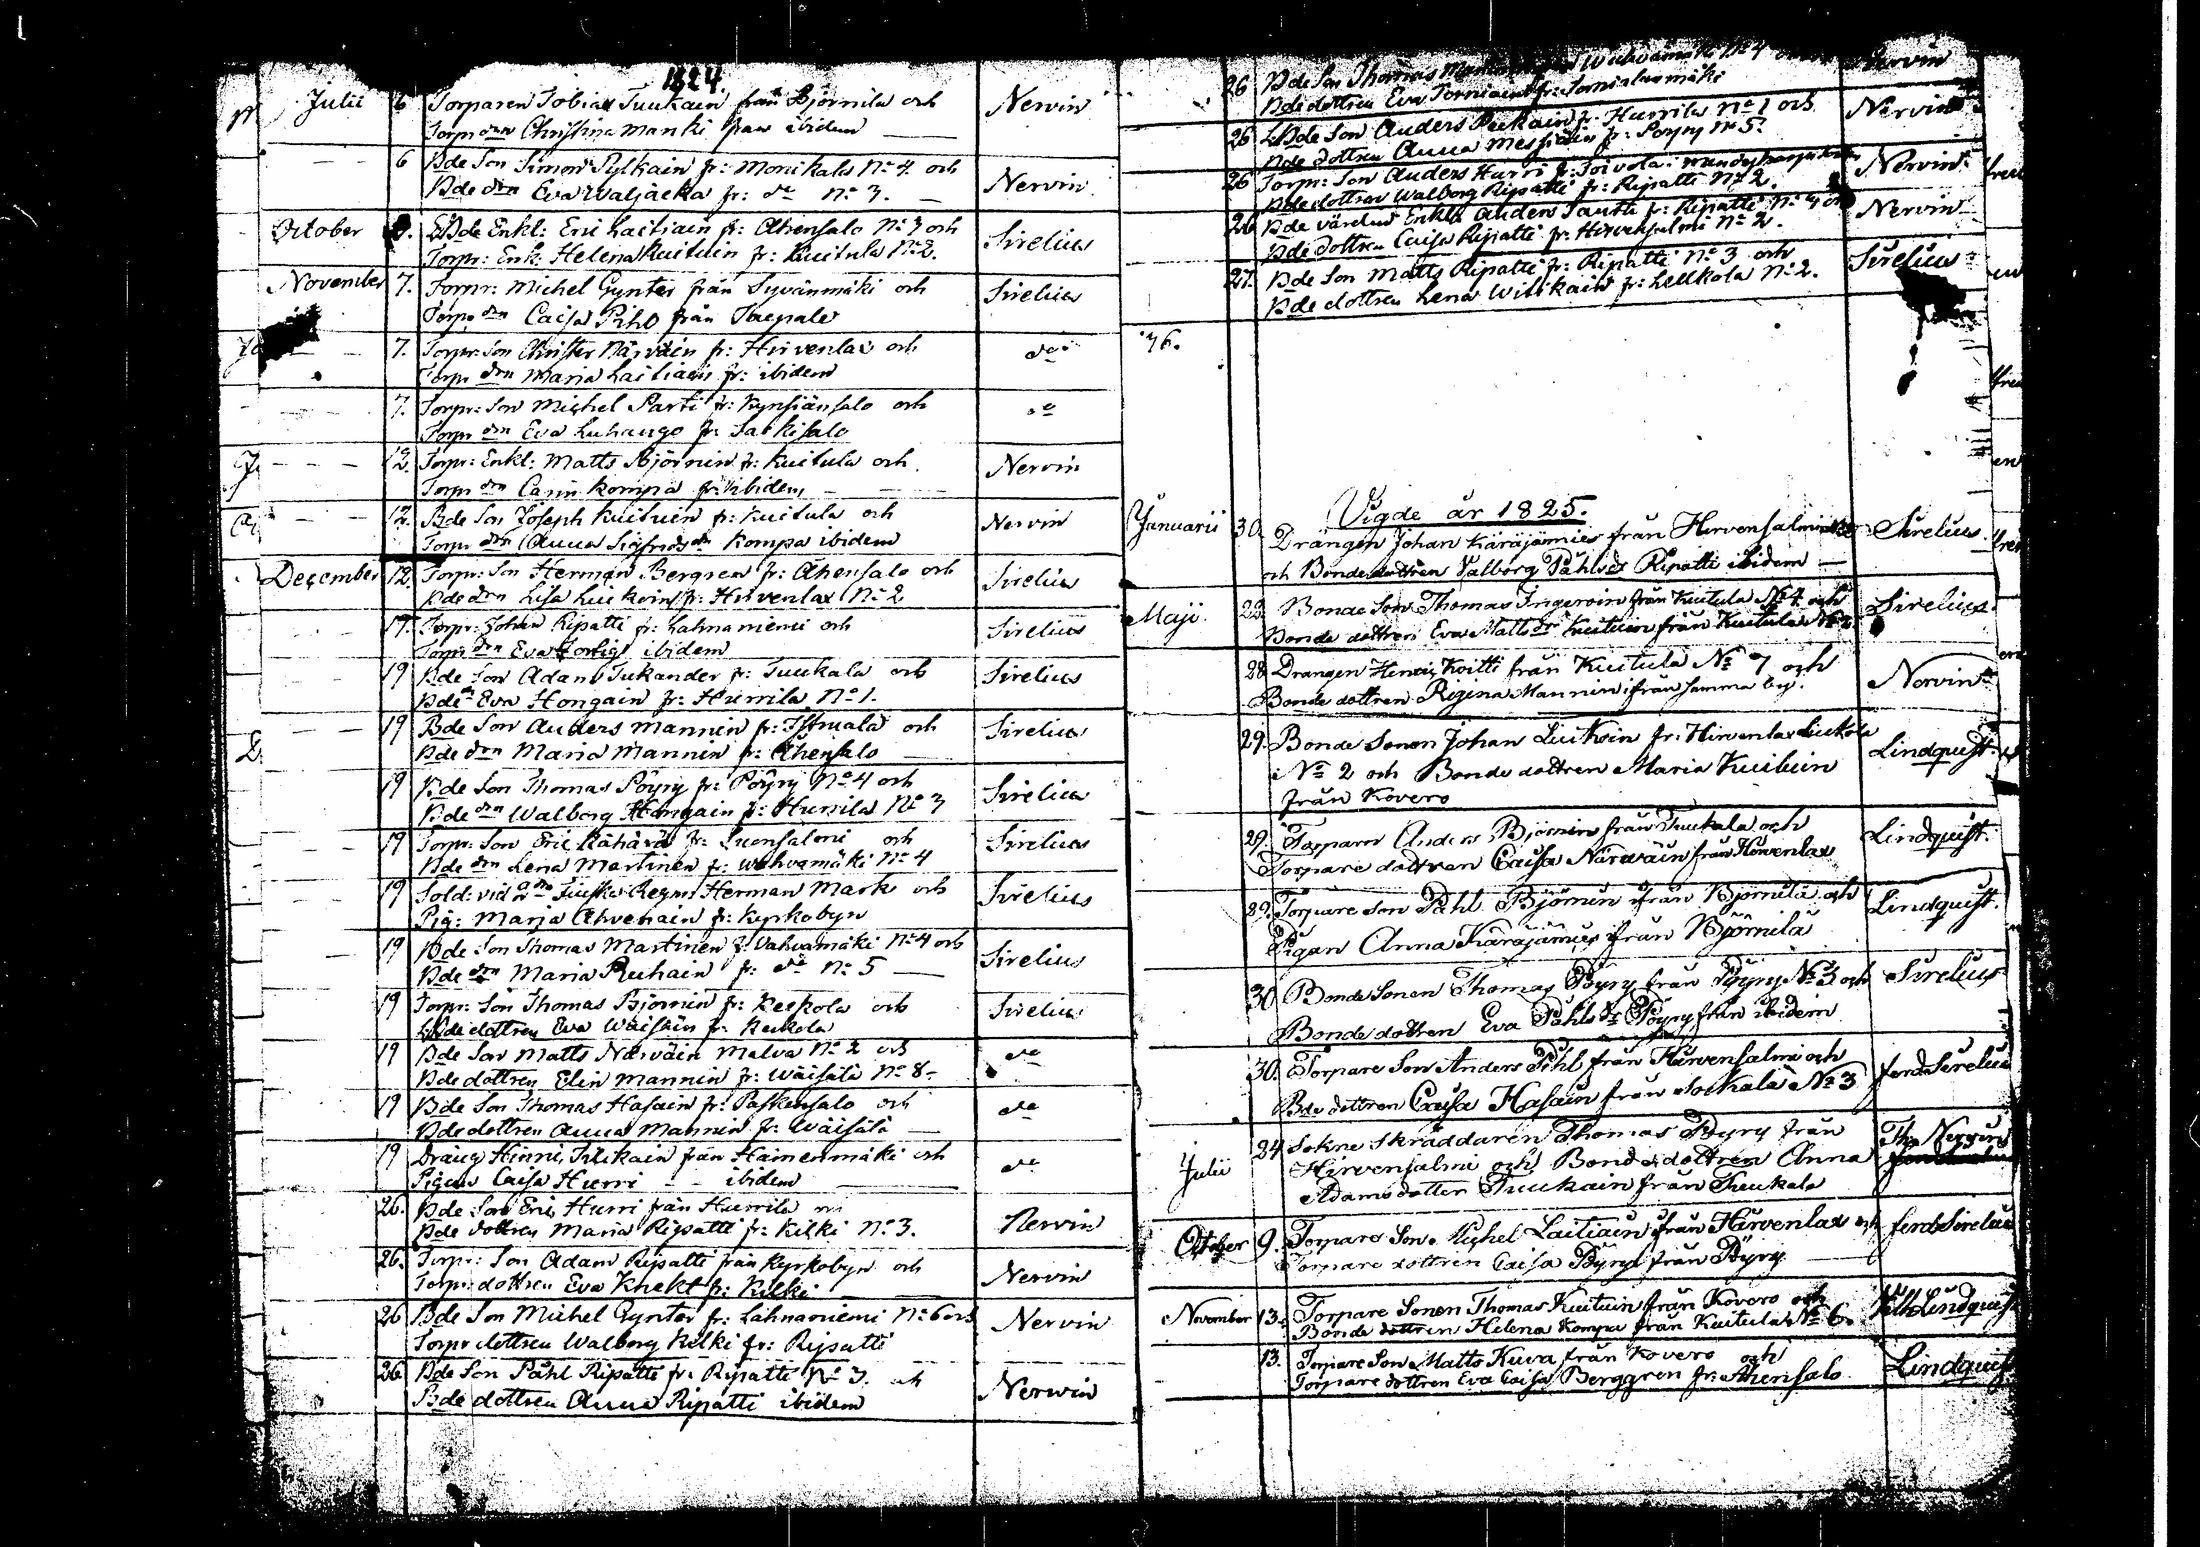 1824.
Julii 6 Torparen Tobias Tuukain från Björnila och Nervin
Torpr dtn Christina Manki från ibidem
6 Bde Son Simon Pylkain fr: Monikala No 4 och Nervin
Bde dtn Eva Waljacka fr: do No 3.
October Bde Enkl: Eric Laitiain fr: Ahensalo No 3 och Sirelius
Torpr: Enk: Helena Kuituin fr: Kuitula No 2.
November 7. Torpr: Michel Gynter från Syvänmäki och Sirelius
Torpr dtn Caisa Piho från Taepale
7. Torpr: Son Christer Närväin fr: Hirvenlax och do
Torpr dtn Maria Laitiain fr: ibidem
7. Torpr: Son Michel Parti fr: Kynsiänsalo och do
Torpr dtn Eva Luhango fr: Satkisalo
12. Torpr: Enkl: Matts Björnin fr: Kuitula och Nervin
Torpr dtn Carin Kompa fr: ibidem
12. Bde Son Joseph Kuituin fr: Kuitula och Nervin
Torpr dtn Anna Sigfrids dtr Kompa ibidem
December 12. Torpr: Son Herman Bergren fr: Ahensalo och Sirelius
Bde dtn Lisa Luukoin fr: Hirvenlax No 2
17. Torpr: Johan Ripatti fr: Lahnaniemi och Sirelius
Torpr dtn Eva ibidem
19 Bde Son Adam Tukander fr: Tuukala och Sirelius
Bde dn Eva Hongain fr: Hurrila No 1.
19 Bde Son Anders Mannin fr: och Sirelius
Bde dtn Maria Mannin fr: Ahensalo
19 Bde Son Thomas Pöyry fr: Pöyry No 4 och Sirelius
Bde dtn Walborg Hongain fr: Hurrila No 3
19 Torpr: Son Eric Kähärä fr: Suonsalmi och Sirelius
Bde dtn Lena Martinen fr: Wahvamäki No 4
19 Sold: vid Regm: Herman Mark och Sirelius
Pig: Maria Ahvenain fr: Kyrkobyn
19 Bde Son Thomas Martinen fr: Vahvamäki No 4 och Sirelius
Bde dtn Maria Puhain fr: do No 5
19 Torpr: Son Thomas Björnin fr: Keekola och Sirelius
Bde dottren Eva Wäisäin fr: Keekola
19 Bde Son Matts Närväin Malva No 2 och do
Bde dottren Elin Mannin fr: Wäisälä No 8
19 Bde Son Thomas Hasain fr: Paskensalo och do
Bde dottren Anna Mannin fr: Wäisälä
19 Dräng Hinric Pulkain från Hämenmäki och do
Pigan Caisa Hurri ibidem
26. Bde Son Eric Hurri från Hurrila och Nervin
Bde dottren Maria Ripatti fr: Kilki No 3.
26. Torpr: Son Adam Ripatti från Kyrkobyn och Nervin
Torpr: dottren Eva Knekt fr: Kilki
26 Bde Son Michel Gynter fr: Lahnaniemi No 6 och Nervin
Torpr dottren Walborg Kilki fr: Ripatti
26 Bde Son Påhl Ripatti fr: Ripatti No 3. och Nerwin
Bde dottren Anna Ripatti ibidem
26 Bde Son Thomas No 4 Nervin
Bde dottren Eva Torniain fr: Torniaismäki
26 Bde Son Anders Puukain fr. Hurrila No 1 och Nervin
Bde dottren Anna fr: Pöyry No 5.
26 Torpr: Son Anders Hurri fr: Toivola i Nervin
Bde dottren Walborg Ripatti fr: Ripatti No 2.
26 Bde värden Enkl: Anders Tautti fr: Ripatti No 4 och Nervin
Bde dottren Caisa Ripatti fr: Hirvensalmi No 2.
27. Bde Son Matts Ripatti fr: Ripatti No 3 och Sirelius
Bde dottren Lena Wilikain fr: Lellkola No 2.
76.
Vigde år 1825.
Januarii 30. Drängen Johan Käräjämies från Hirvensalmi Sirelius
och Bondedottren Valborg Påhlsdr Ripatti ibidem
Maji. 23. Bonde Son Thomas Ingeroin från Kuitula No 4 och Sirelius
Bonde dottren Eva Matts dr Kuituin från Kuitula
28 Drängen Henric Koitti från Kuitula No 7 och Norvin
Bonde dottren Regina Mannin ifrån samma by.
29. Bonde Sonen Johan Luikoin fr: Hirvenlax Liukola Lindquist
No 2 och Bonde dottren Maria Kuituin
från Kovero
29. Torparn Anders Björnin från Tuukala och Lindquist.
Torpare dottren Caisa Närväin från Hirvenlax
29. Torpare Son Påhl Björnin ifrån Björnilä och Lindquist.
Pigan Anna Käräjämies från Björnilä
30 Bonde Sonen Thomas Pöyry från Pöyry No 3 och Sirelius
Bonde dottren Eva Påhls dr Pöyry från ibidem
30. Torpare Son Anders Pihl från Hirvensalmi och ferd. Sirelius
Bde dottren Caisa Hasain från Sockala No 3
Julii 24 Sokne Skräddaren Thomas Pöyry från Th. Nervin
Hirvensalmi och Bondedottren Anna
Adamsdotter Tuukain från Tuukala
October 9. Torpare Son Michel Laitiain från Hirvenlax och ferd. Sirelius
Torpare dottren Caisa Pöyry från Pöyry
November 13. Torpare Sonen Thomas Kuituin från Kovero och Lindquist
Bonde dottren Helena Kompa från Kuitula No 6.
13. Torpare Son Matts Kuva från Kovero och Lindquist
Torpare dottren Eva Caisa Berggren fr: Ahensalo